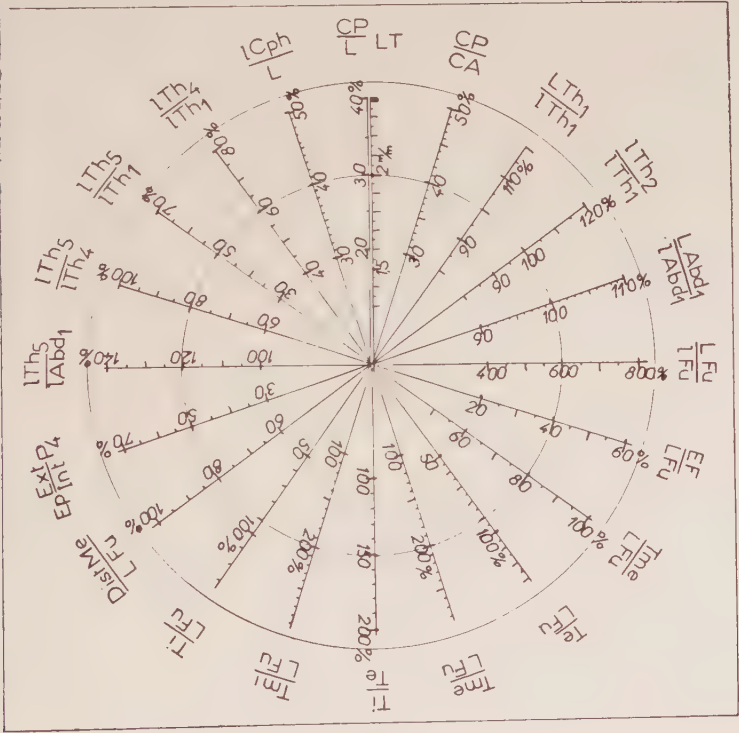 CP
L LT
40%
30
20
2 m/m
15
CP
CA
50%
40
30
LTh1
lTh1
110%
90
lTh2
lTh1
120%
100
90
LAbd1
lAbd1
110%
100
90
LFu
lFu
800%
600
400
EF
LFu
60%
40
20
Tme
LFu
100%
80
60
Te
LFu
100%
50
Tme
LFu
200%
100
Ti
Te
200%
150
100
Tmi
LFu
200%
100
Ti
LFu
100%
50
DistMe
LFu
100%
80
60
Ext P4
EpInt
70%
50
30
lTh5
lAbd1
140%
120
100
lTh5
lTh4
100%
80
60
lTh5
lTh1
70%
50
30
lTh4
lTh1
80%
60
40
lCph
L
50%
40
30